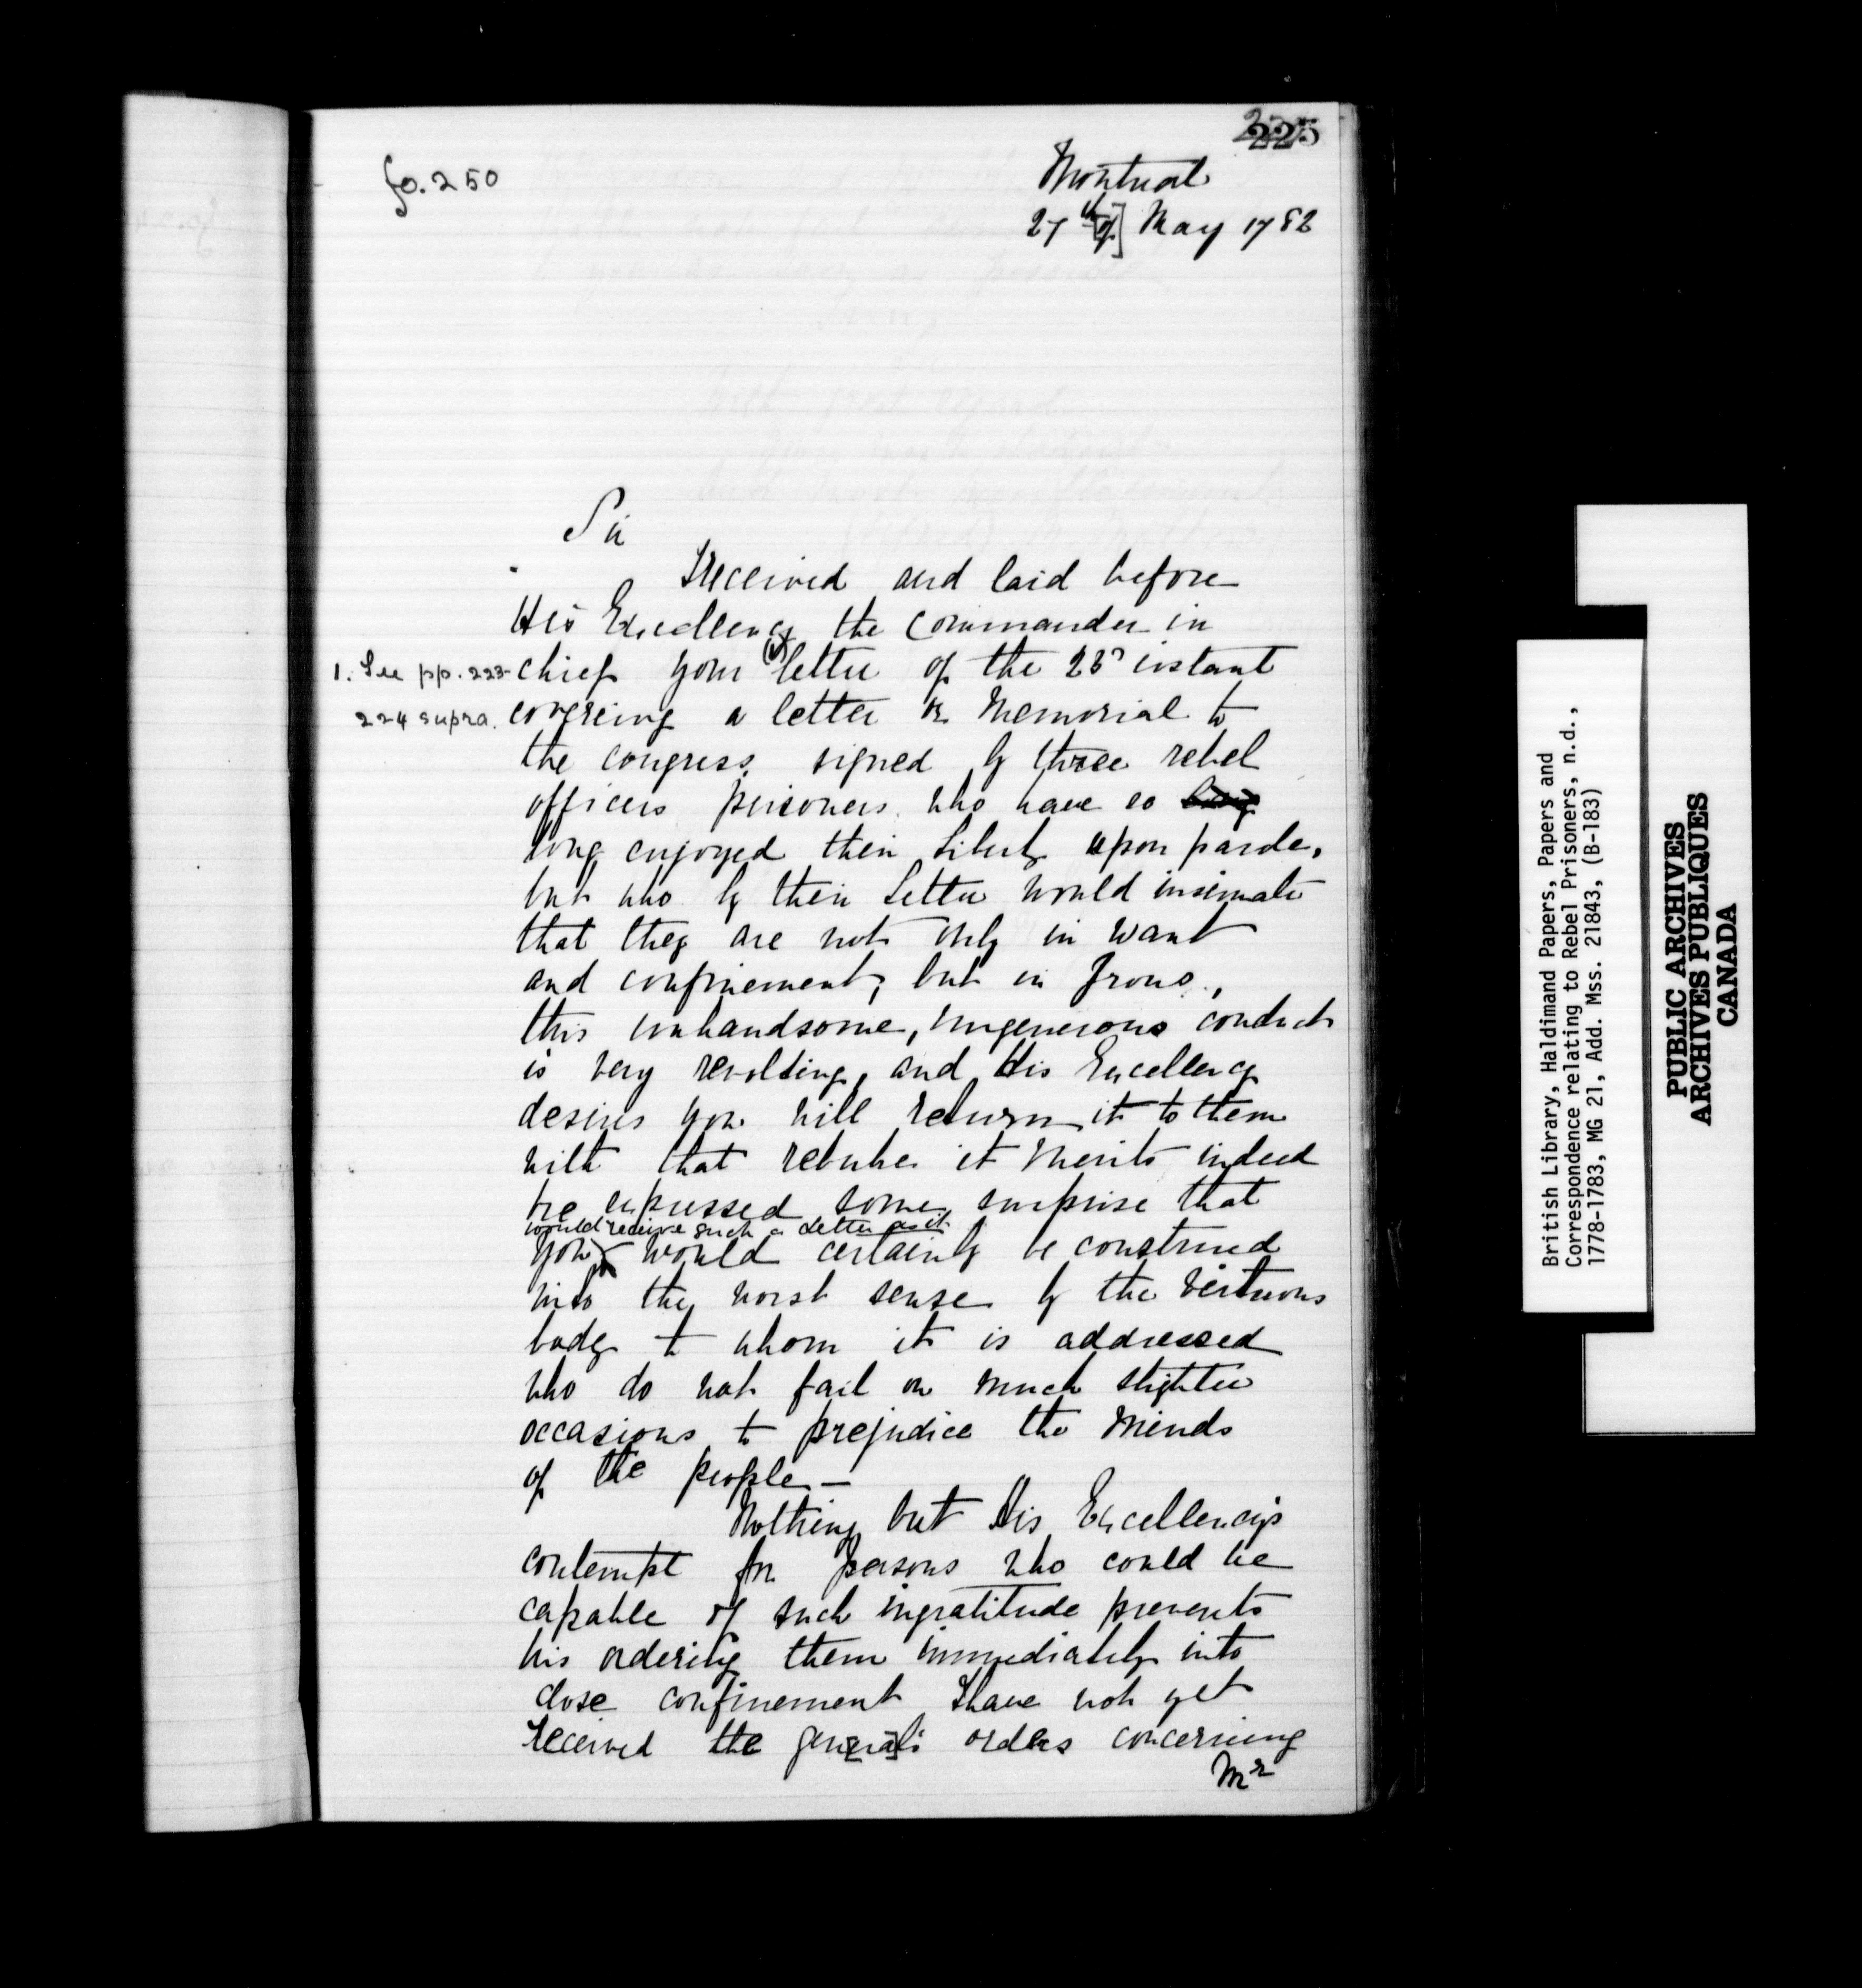 225
fo. 250
Montreal
27th [of] May 1782
Sir
I received and laid before
His Excellency the Commander in
chief your (1) letter of the 23d instant
1. See pp. 223-
224 supra.
covering a letter or Memorial to
the congress signed by three rebel
officers prisoners who have so
long enjoyed their Liberty upon parole,
but who by their Letter would insinuate
that they are not only in want
and confinement, but in Irons,
this unhandsome, ungenerous conduct
is very revolting, and His Excellency
desires you will return it to them
with that rebuke it Merits indeed
he expressed some surprise that
would receive such a Letter as it
you would certainly be construed
into the worst sense by the virtuous
body to whom it is addressed
who do not fail on much slighter
occasions to prejudice the Minds
of the people —
Nothing but His Excellency's
contempt for persons who could be
capable of such ingratitude prevents
his ordering them immediately into
close confinement I have not yet
received the gen[era]l's orders concerning
Mr
British Library, Haldimand Papers, Papers and
Correspondence relating to Rebel Prisoners, n.d.,
1778-1783, MG 21, Add. Mss. 21843, (B-183)
PUBLIC ARCHIVES
ARCHIVES PUBLIQUES
CANADA